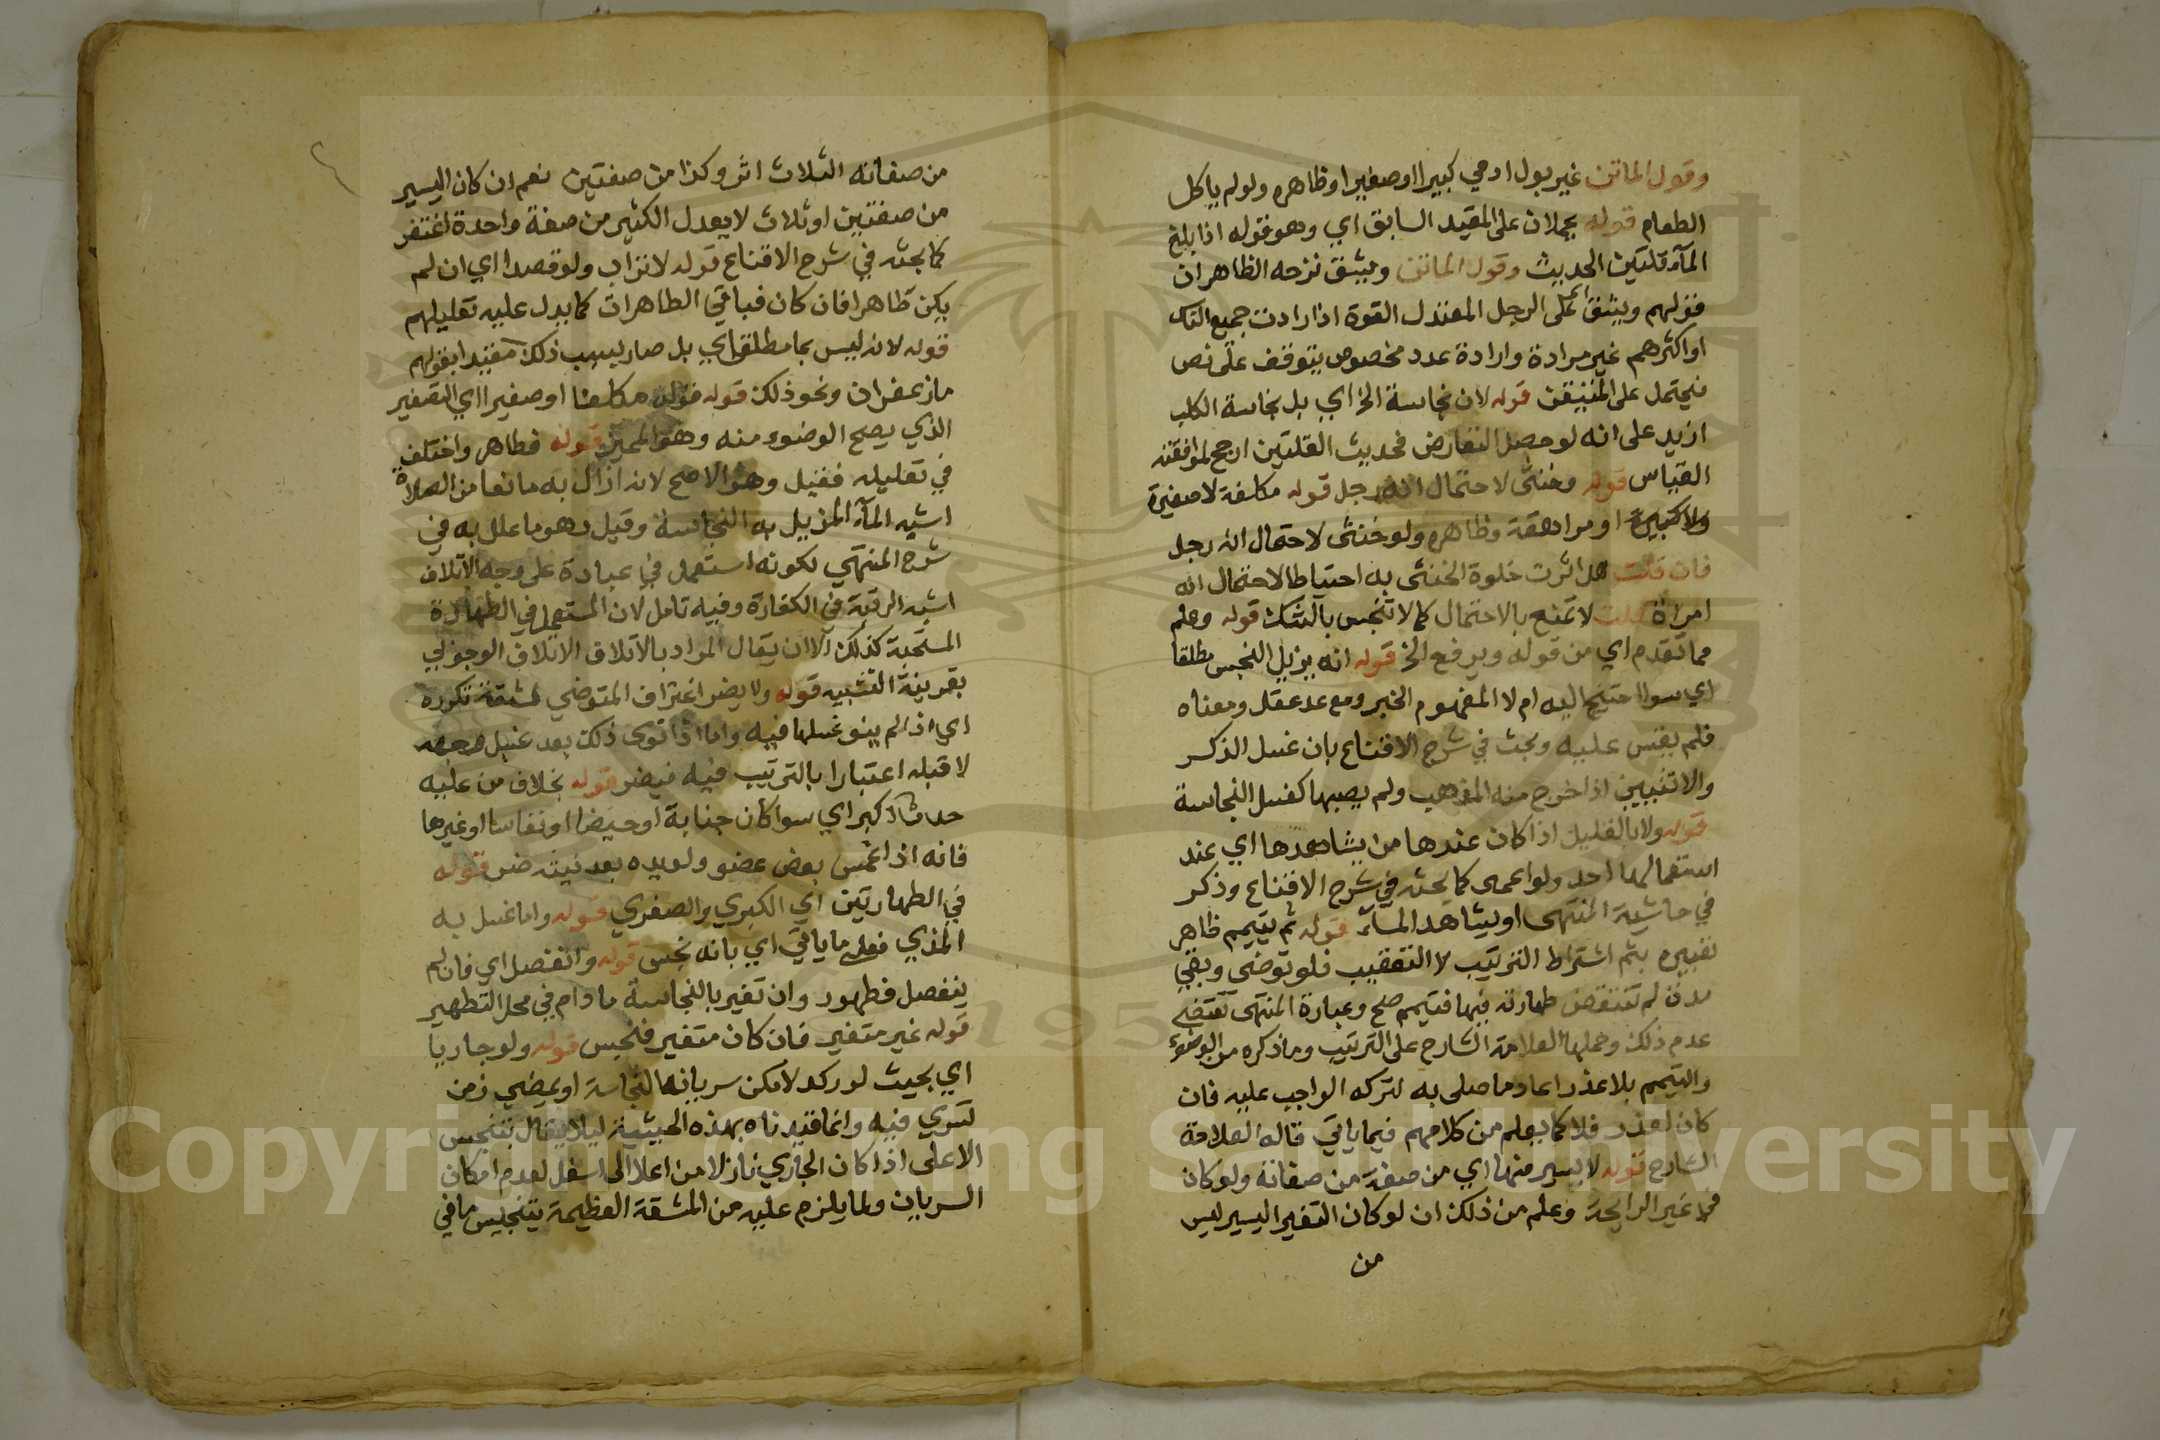 وقول الماتن غير بول ادمي كبيرا او صغيرا وظاهره ولو لم ياكل
الطعام قوله يحملان على المقيد السابق اي وهو قوله اذا بلغ
المآء قلتين الحديث وقول الماتن ويشق نزحه الظاهر ان
قولهم ويشق على الرجل المعتدل القوة اذ ارادت جميع الناس
او اكثرهم غير مرادة وارادة عدد مخصوص يتوقف على نص
فيحتمل على المتيقن قوله لان نجاسة الخ اي بل نجاسة الكلب
ازيد على انه لو حصل التعارض فحديث القلتين ارجح لموافقته
القياس قوله وخنثى لاحتمال انه رجل قوله مكلفة لا صغيرة
ولا كبيرة او مراهقة وظاهره ولو خنثى لاحتمال انه رجل
فان قلت هل اثرت خلوة الخنثى به احتياطا لاحتمال انه
امراة قلت لا تمنع بالاحتمال كما لا تنجس بالشك قوله وعلم
مما تقدم اي من قوله ويرفع الخ قوله انه يزيل النجس مطلقا
اي سوا احتيج اليه ام لا المفهوم الخبر ومع عدم عقل ومعناه
فلم يقس عليه وبحث في شرح الاقناع بان غسل الذكر
والانثيين اذا خرج منه المذي ولم يصبهما كغسل النجاسة
قوله ولا بالقليل اذا كان عندها من يشاهدها اي عند
استعمالها احد ولو اعمى كما بحثه في شرح الاقناع وذكر
في حاشية المنتهى او يشاهد المآء قوله ثم يتيمم ظاهر
تعبيره بثم اشتراط الترتيب لا التعقيب فلو توضى وبقي
مدة لم تنتقض طهارته فيها فتيمم صح وعبارة المنتهى تقتضي
عدم ذلك وحملها العلامة الشارح على الترتيب وما ذكره من الوضوء
والتيمم بلا عذر اعاد ما صلى به لتركه الواجب عليه فان
كان لعذر فلا كما يعلم من كلامهم فيما ياتي قاله العلامة
الشارح قوله لا يسير منها اي من صفة من صفاته ولو كان
في غير الرايحة وعلم من ذلك ان لو كان التغير اليسير ليس
من
من صفاته الثلاث اثر وكذا من صفتين نعم ان كان اليسير
من صفتين او ثلاث لا يعدل الكثير من صفة واحدة اغتفر
كما بحثه في شرح الاقناع قوله لا تراب ولو قصدا اي ان لم
يكن طاهرا فان كان فباقي الطاهرات كما يدل عليه تعليلهم
قوله لانه ليس بما مطلق اي بل صار بسبب ذلك مقيدا بقولهم
ما زعفران ونحو ذلك قوله مكلفا او صغيرا اي الصغير
الذي يصح الوضوء منه وهو المميز قوله فطاهر واختلف
في تعليله فقيل وهو الاصح لانه ازال به مانعا من الصلاة
اشبه المآء المزيل به النجاسة وقيل وهو ما علل به في
شرح المنتهى لكونه استعمل في عبادة على وجه الاتلاف
اشبه الرقبة في الكفارة وفيه تامل لان المستعمل في الطهارة
المستحبة كذلك الا ان يقال المراد بالاتلاف الاتلاف الوجوبي
بقرينة التشبيه قوله ولا يضر اغتراف المتوضي لمشقة تكرره
اي اذا لم ينو غسلها فيه واما اذا نوى ذلك بعد غسل وجهه
لا قبله اعتبارا بالترتيب فيه فيضر قوله بخلاف من عليه
حدث اكبر اي سوا كان جنابة او حيضا او نفاسا او غيرها
فانه اذا غمس بعض عضو ولو يده بعد نيته ضر قوله
في الطهارتين اي الكبري والصغري قوله واما غسل به
المذي فعلى ما ياتي اي بانه نجس قوله وانفصل اي فان لم
ينفصل فطهور وان تغير بالنجاسة ما دام في محل التطهير
قوله غير متغير فان كان متغير فنجس قوله ولو جاريا
اي بحيث لو ركد لامكن سريانه النجاسة او يمضي زمن
تسري فيه وانما قيدناه بهذه الحيثية ليلا يقال تنجس
الاعلى اذا كان الجاري نازلا من اعلا الى اسفل لعدم امكان
السريان ولما يلزم عليه من المشقة العظيمة بتنجيس ما في
Copyright © King Saud University
195